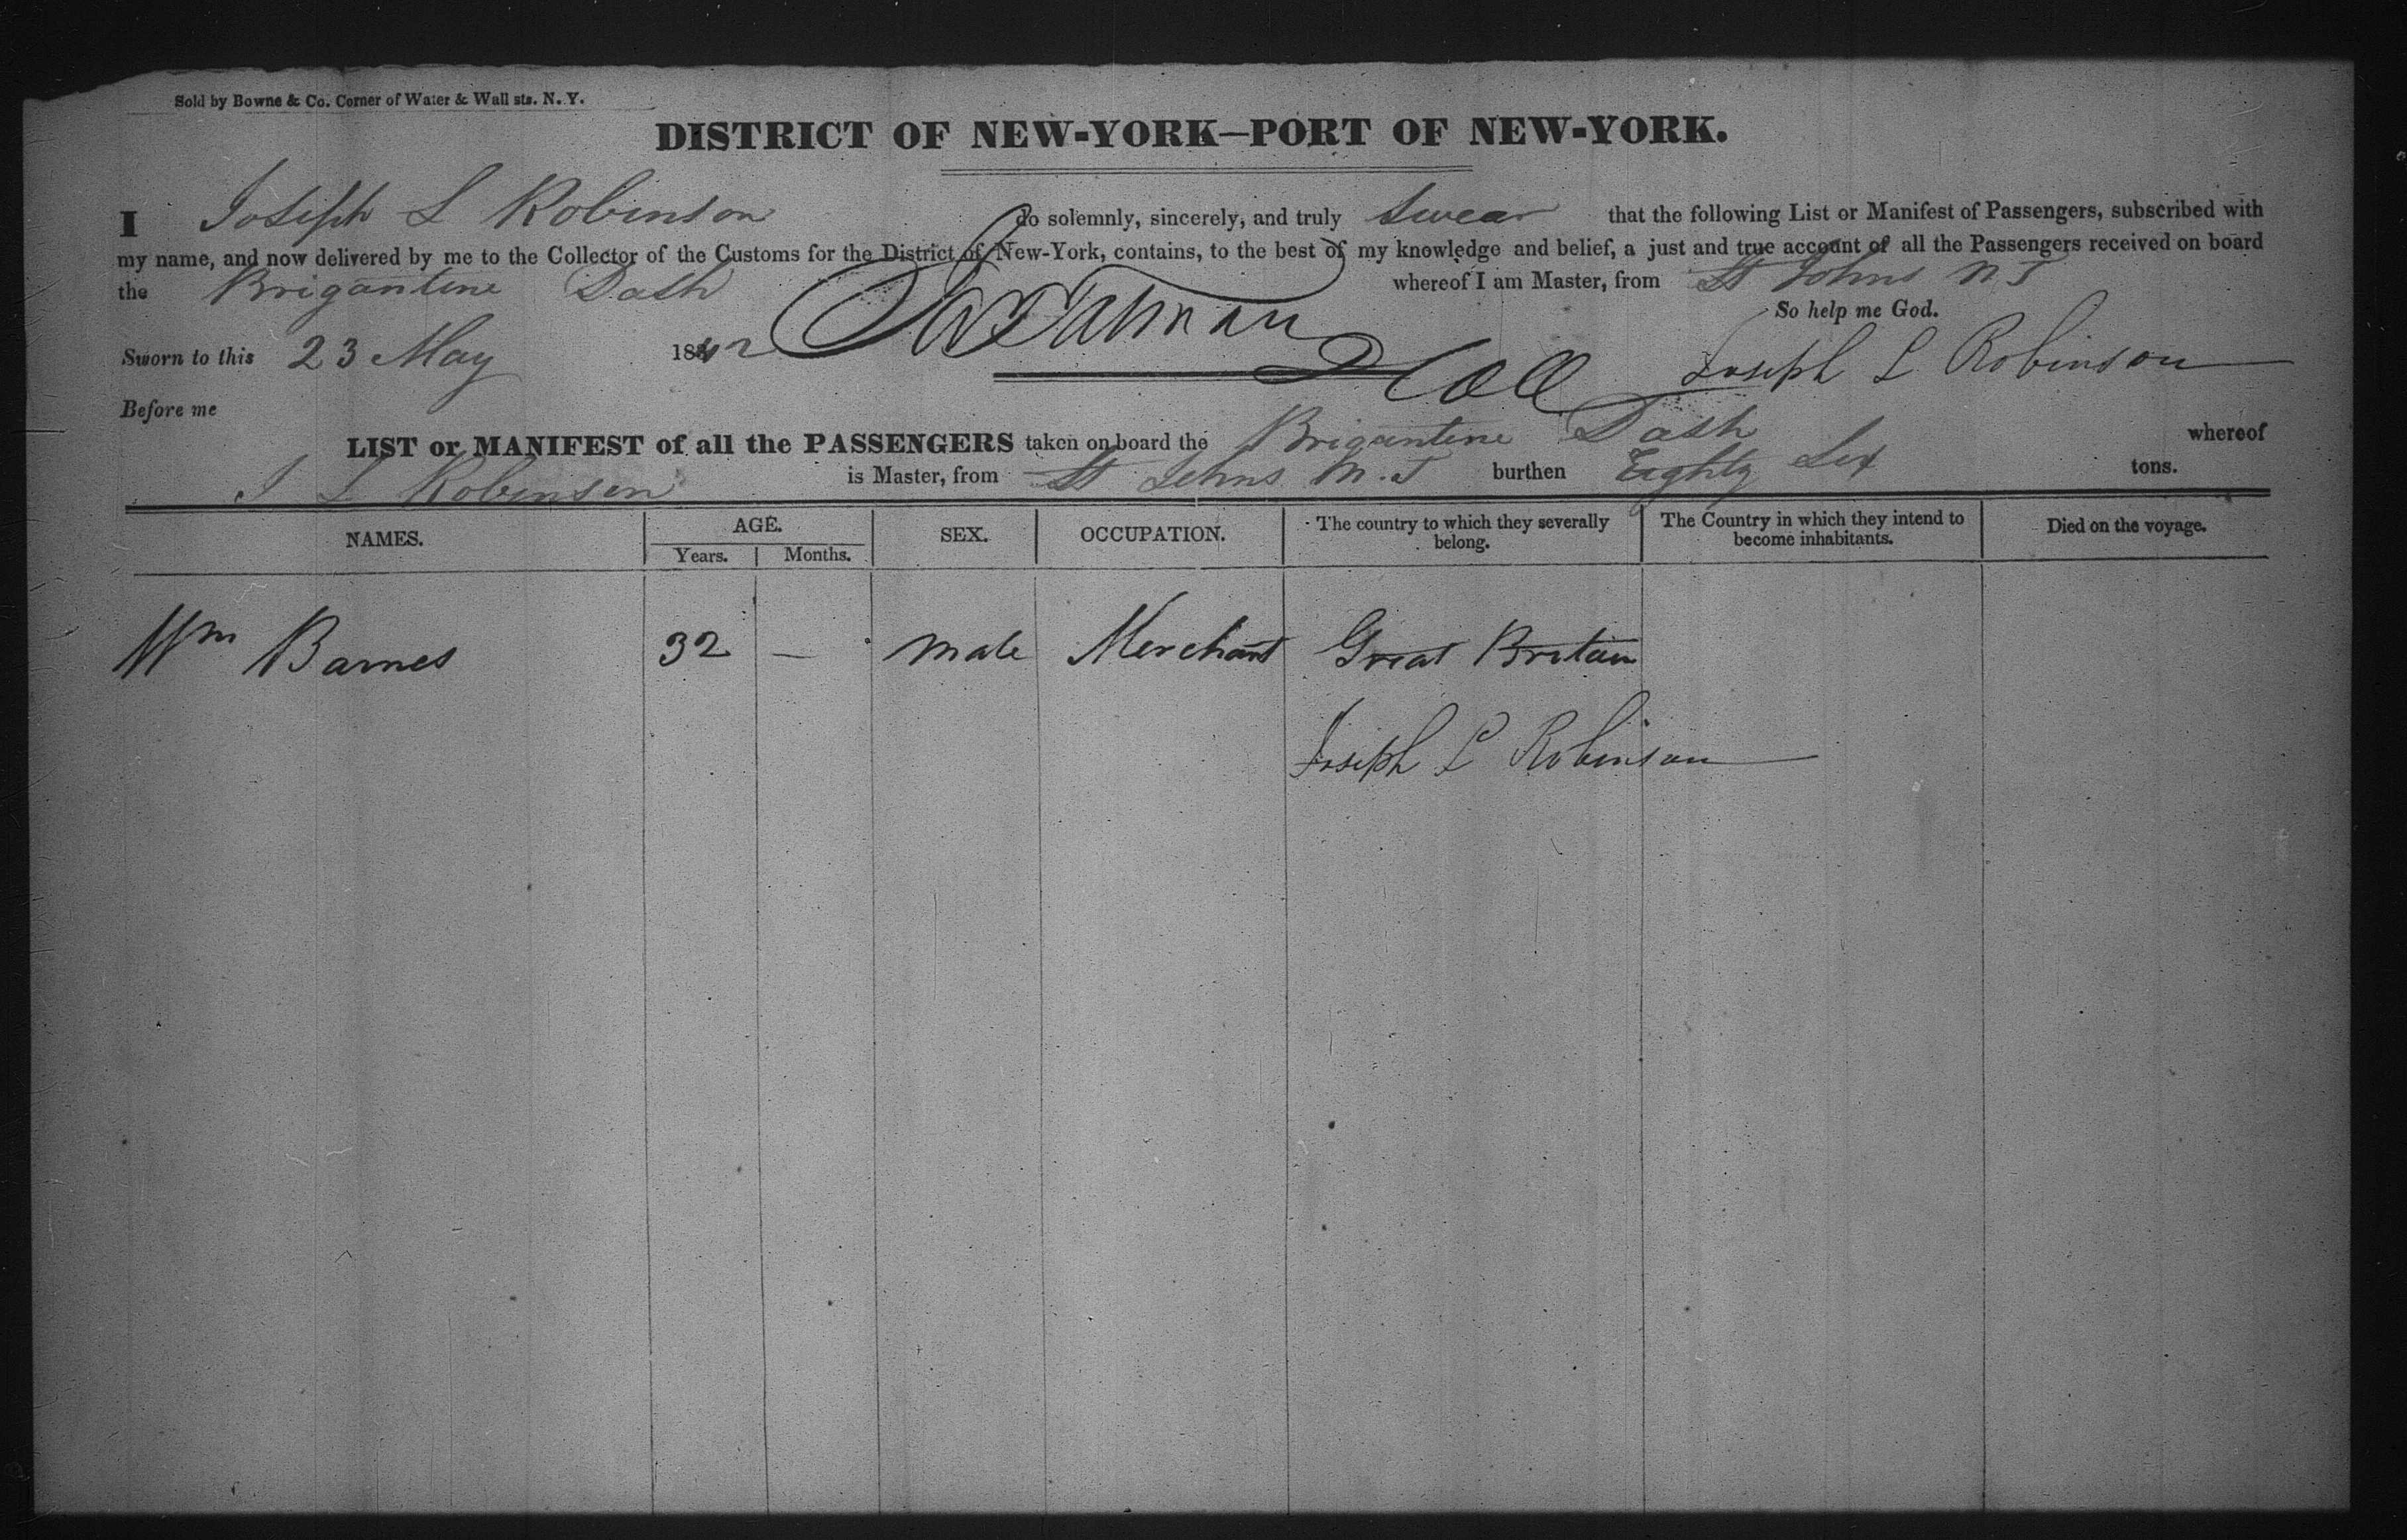 Sold by Bowne & Co. Corner of Water & Wall sts. N. Y.
DISTRICT OF NEW-YORK—PORT OF NEW-YORK.
I Joseph L Robinson do solemnly, sincerely, and truly swear that the following List or Manifest of Passengers, subscribed with
my name, and now delivered by me to the Collector of the Customs for the District of New-York, contains, to the best of my knowledge and belief, a just and true account of all the Passengers received on board
the Brigantine Dash whereof I am Master, from St Johns
So help me God.
Sworn to this 23 May 1842
Joseph L Robinson
Before me
LIST or MANIFEST of all the PASSENGERS taken on board the Brigantine Dash whereof
J L Robinson is Master, from St Johns burthen Eighty Six tons.
NAMES. AGE. SEX. OCCUPATION. The country to which they severally belong. The Country in which they intend to become inhabitants. Died on the voyage.
Years. Months.
Wm Barnes 32 — male Merchant Great Britain
Joseph L Robinson